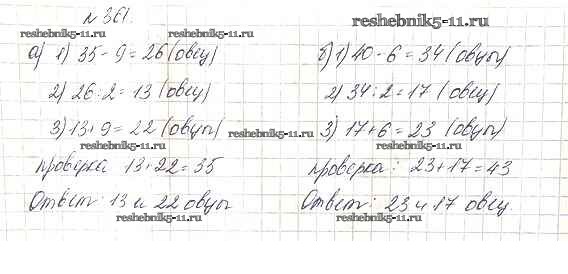 № 361.
reshebnik5-11.ru
reshebnik5-11.ru
а) 1) 35 - 9 = 26 (овец)
2) 26 : 2 = 13 (овец)
3) 13 + 9 = 22 (овцы)
reshebnik5-11.ru
reshebnik5-11.ru
проверка 13 + 22 = 35
Ответ: 13 и 22 овцы
reshebnik5-11.ru
б) 1) 40 - 6 = 34 (овцы)
reshebnik5-11.ru
2) 34 : 2 = 17 (овец)
3) 17 + 6 = 23 (овцы)
reshebnik5-11.ru
проверка: 23 + 17 = 43
Ответ: 23 и 17 овец
reshebnik5-11.ru